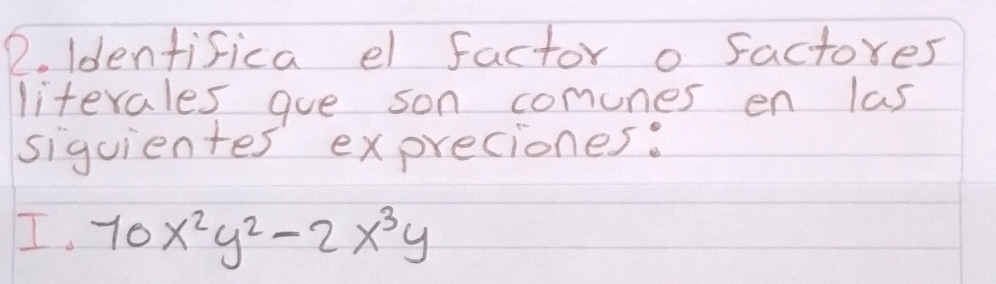 2. Identifica el factor o factores
literales que son comunes en las
siguientes expreciones:
I. 10x²y² - 2x³y